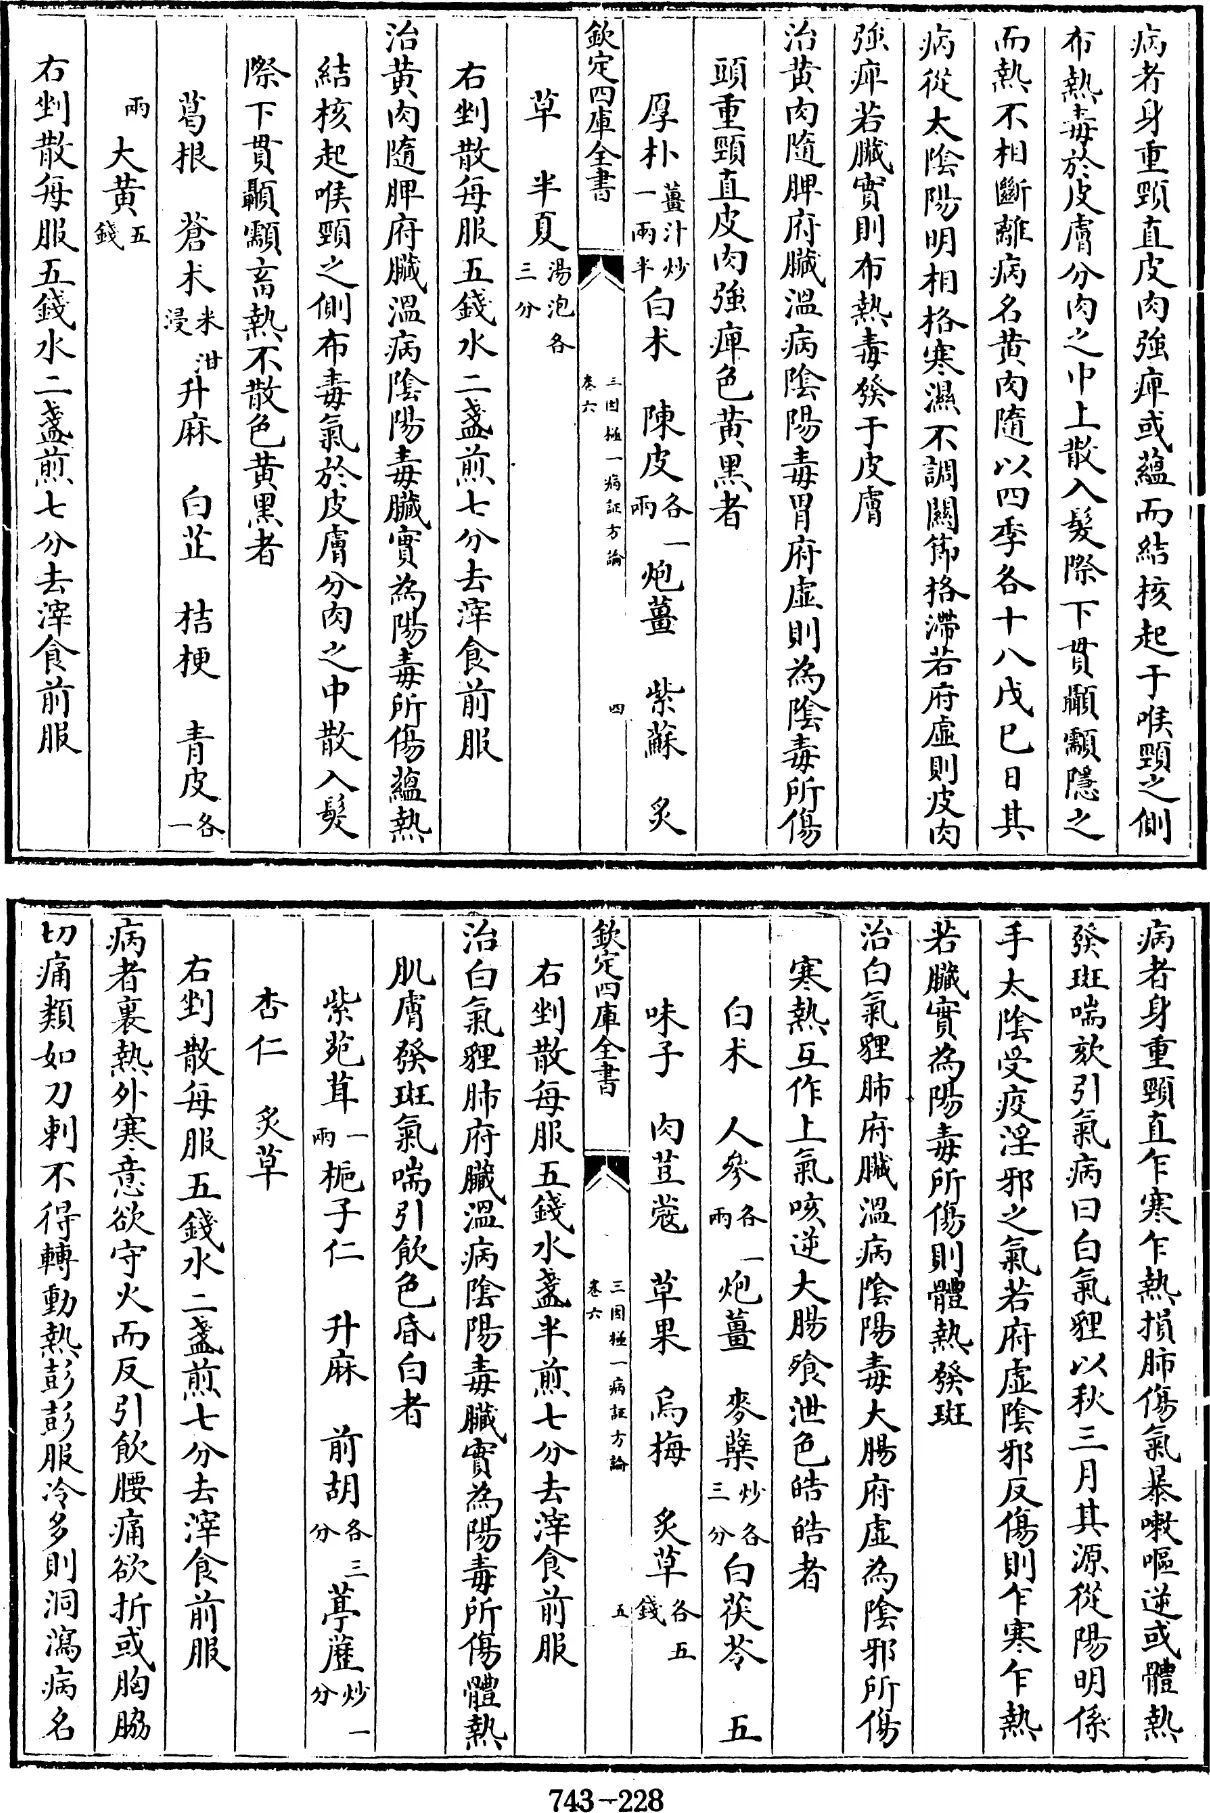 病者身重頸直皮肉強痺或蘊而結核起于喉頸之側
布熱毒於皮膚分肉之中上散入髮際下貫顳顬隱之
而熱不相斷離病名黄肉隨以四季各十八戊巳日其
病從太陰陽明相格寒濕不調關節格滯若府虛則皮肉
強痺若臟實則布熱毒發于皮膚
治黄肉隨脾府臟溫病陰陽毒胃府虛則為陰毒所傷
頭重頸直皮肉強痺色黄黑者
厚朴薑汁炒一兩半白术 陳皮各一兩炮薑 紫蘇 炙
欽定四庫全書 三因極一病証方論 卷六 四
草 半夏湯泡各三分
右剉散每服五錢水二盞煎七分去滓食前服
治黄肉隨脾府臟溫病陰陽毒臟實為陽毒所傷蘊熱
結核起喉頸之側布毒氣於皮膚分肉之中散入髮
際下貫顳顬畜熱不散色黄黑者
葛根 蒼术米泔浸升麻 白芷 桔梗 青皮各一
兩大黄五錢
右剉散每服五錢水二盞煎七分去滓食前服
病者身重頸直乍寒乍熱損肺傷氣暴嗽嘔逆或體熱
發斑喘欬引氣病曰白氣貍以秋三月其源從陽明係
手太陰受疫淫邪之氣若府虛陰邪反傷則乍寒乍熱
若臟實為陽毒所傷則體熱發斑
治白氣貍肺府臟溫病陰陽毒大腸府虛為陰邪所傷
寒熱互作上氣咳逆大腸飱泄色皓皓者
白术 人參各一兩炮薑 麥蘖炒各三分白茯苓 五
味子 肉荳蔻 草果 烏梅 炙草各五錢
欽定四庫全書 三因極一病証方論 卷六 五
右剉散每服五錢水盞半煎七分去滓食前服
治白氣貍肺府臟溫病陰陽毒臟實為陽毒所傷體熱
肌膚發斑氣喘引飲色㫪白者
紫苑茸一兩梔子仁 升麻 前胡各三分葶藶炒一分
杏仁 炙草
右剉散每服五錢水二盞煎七分去滓食前服
病者裏熱外寒意欲守火而反引飲腰痛欲折或胸脇
切痛類如刀刺不得轉動熱彭彭服冷多則洞瀉病名
743-228